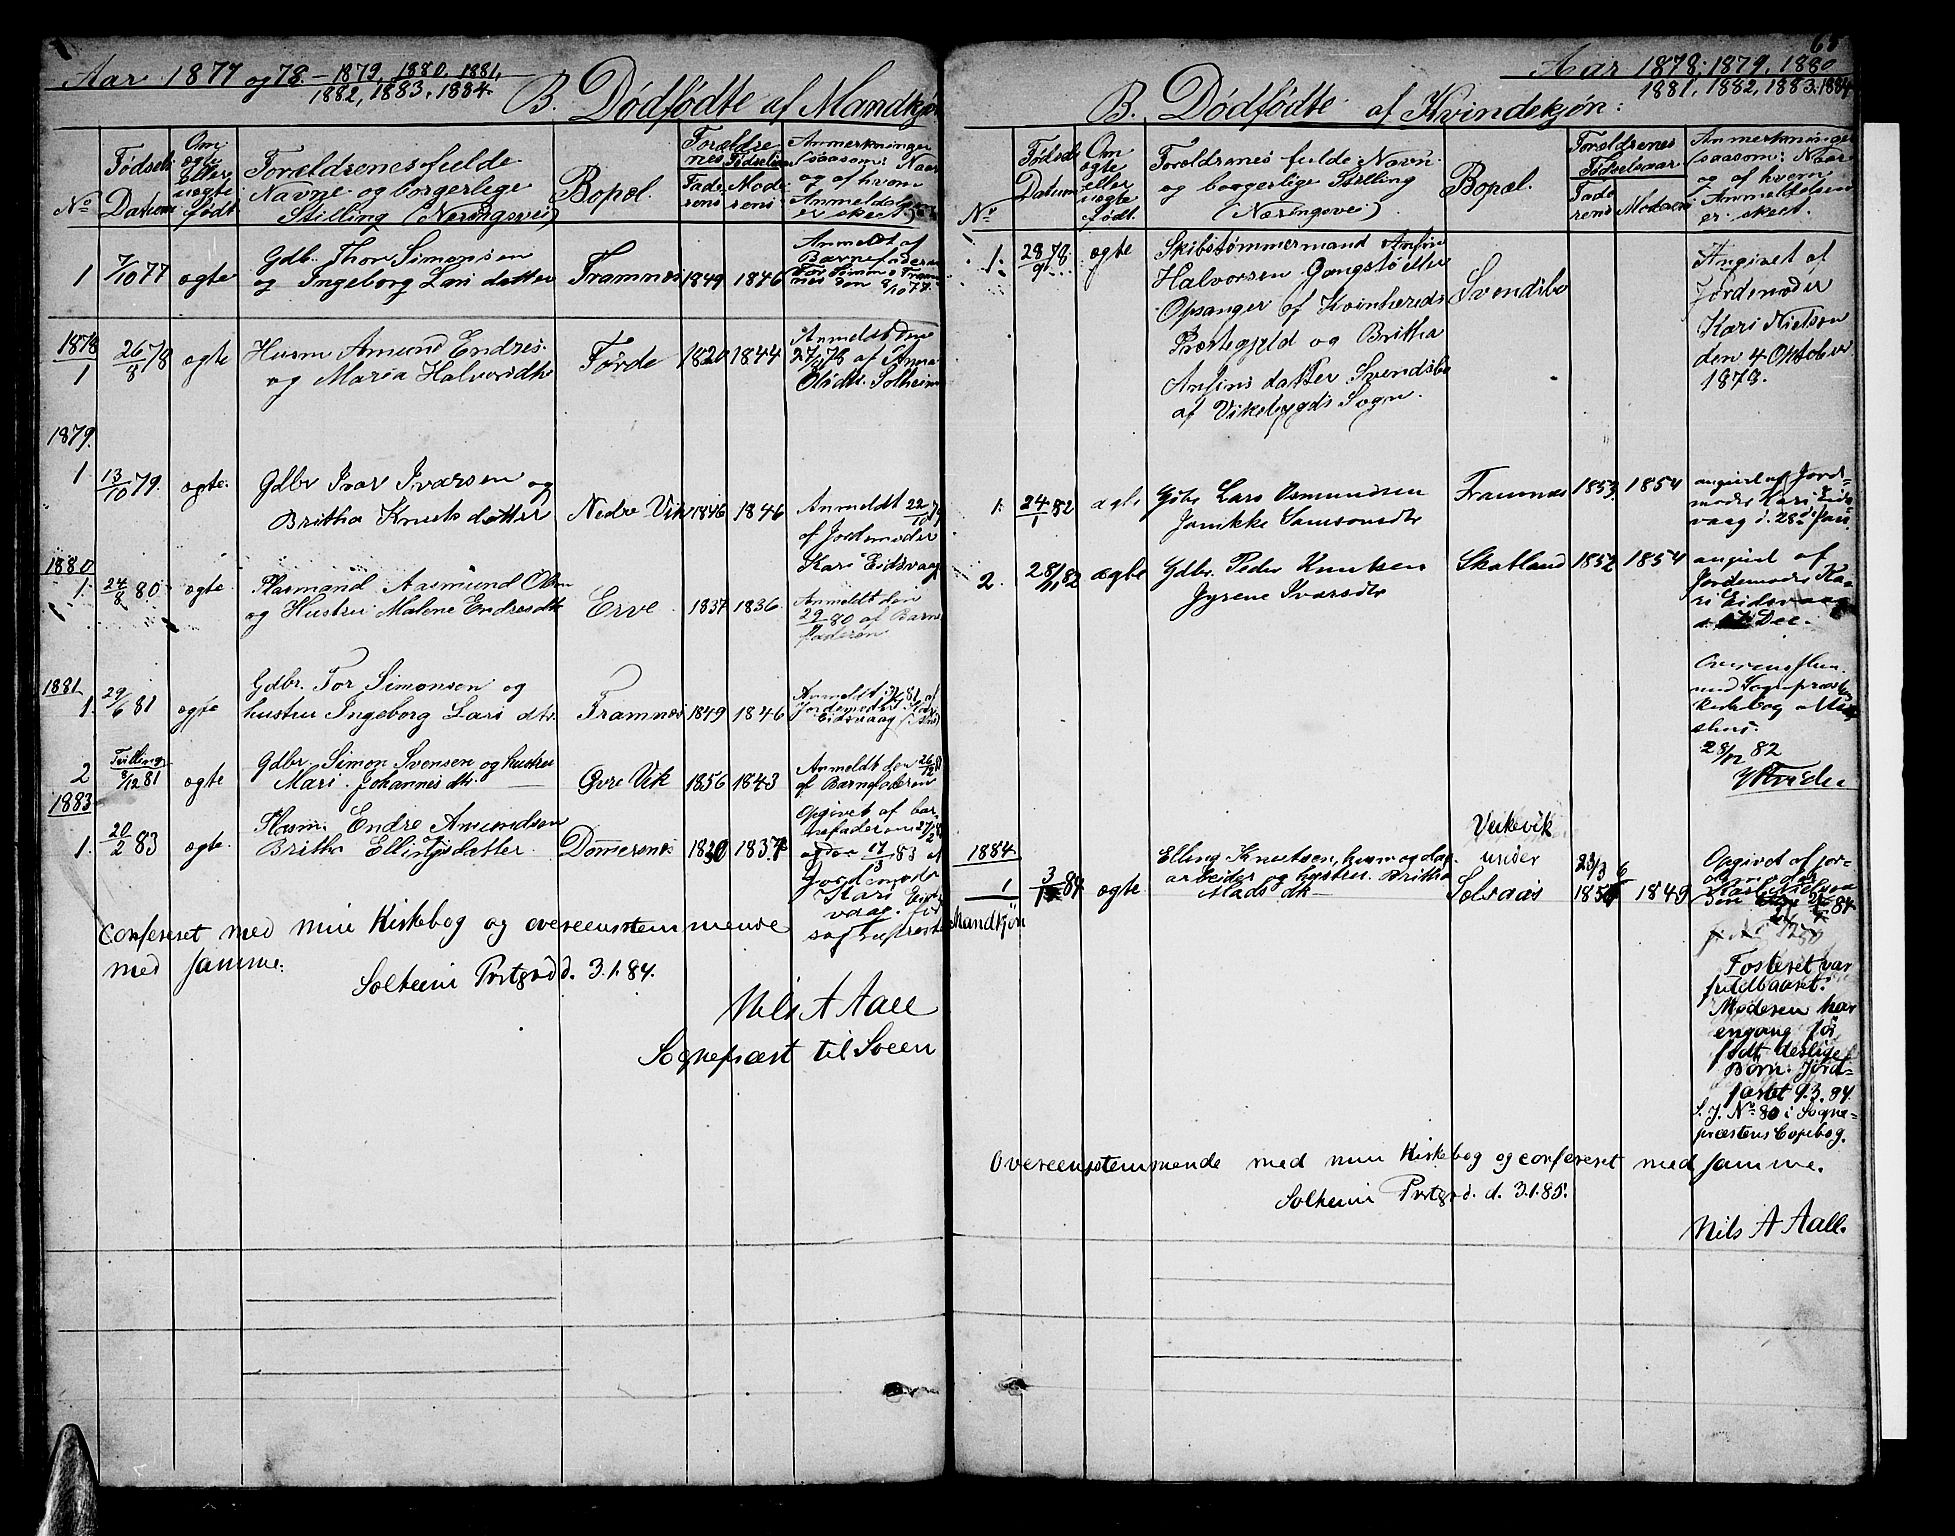 Aar 1877 og 78. – 1879, 1880, 1881,
1882, 1883, 1884.
B. Dödfödte af Mandkjøn
No
Födsels Datum
Om ægte eller uægte født
Forældrenes fulde Navne og borgerlige Stilling (Næringsvei)
Bopæl.
Forældrenes Födselsaar
Faderens
Moderens
Anmerkninger (saasom: Naar og af hvem Anmeldelsen er skeet)
1 7/10 77 ægte
Gdb. Thor Simonsen
og Ingeborg Lars datter
Framnæs 1849 1846
Anmeldt af
Barnefaderen
Tor Simon Fram
næs den 8/10 77.
1878
1 26/8 78 ægte
Husm Amund Endres.
og Maria Halvorsdtr
Førde 1820 1844
Anmeldt den
27/8 78 af Anna
Olsdtr. Solheim
1879.
1 13/10 79. ægte.
Gdbr Ivar Ivarsen og
Britha Knuts datter
Nedre Vik 1846 1846
Anmeldt 22/10 79
af Jordemoder
Kari Eidsvaag
1880
1. 24/8 80 ægte
Plasmand Aasmund Olsen
og Hustru Malene Endresdtr
Erve 1837 1836
Anmeldt den
29/8 80 af Barne
faderen
1881
1. 29/6 81 ægte
Gdbr. Tor Simonsen og
hustru Ingeborg Lars dtr.
Framnæs 1849 1846
Jordemoder Kari
Eidsvaag
2 Tvilling 8/12 81 ægte
Gdbr. Simon Svensen og hustru
Mari Johannes dtr.
Øvre Vik 1856 1843
Anmeldt den 26/12
af Barnefaderen
1883
1. 20/2 83 ægte.
Plasm. Endre Amundsen
Britha Ellingsdatter.
Dommersnes 1830 1837
Opgivet af bar-
nefaderen 27/2
17/3 83 af
Jordemoder
Kari Eids
vaag. for
sognepræsten
Confereret med min Kirkebog og overeensstemmende
med samme.
Solheim Prstgrd d. 3.1.84.
Nils A Aall
Sognepræst til Sveen
65
Aar 1878, 1879, 1880
1881, 1882, 1883. 1884
B. Dödfödte af Kvindekjön:
No
Födsels Datum
Om ægte eller uægte födt.
Forældrenes fulde Navn og borgerlige Stilling (Næringsvei)
Bopæl.
Forældrenes Födselsaar
Faderens
Moderens
Anmerkninger (saasom: Naar og af hvem Anmeldelsen er skeet.
1. 28/9 78 ægte
Skibstømmermand Anfin
Halvorsen Gangstø eller
Opsanger af Kvinhereds
Præstegjeld og Britha
Anfins datter Svendsbø
af Vikebygds Sogn.
Svendsbø
Angivet af
Jordemoder
Kari Nielsen
den 4 Oktober
1878.
1. 24/1 82 ægte
Gdbr Lars Osmundsen
Jannikke Samsonsdtr
Framnæs 1853 1854
angivet af Jord-
moder Kari Eids
vaag d. 28de Jan.
2. 28/11 82 ægte
Gdbr. Peder Knutsen
Jyrene Ivarsdtr
Skatland 1852 1854
angivet af
Jordemoder Ka-
ri Eidsvaag
Dec.
Overensstem.
med Sognepræsten
kirkebog
28/12 82
1884.
1 3/1 84 ægte
Elling Knutsen, husm og dag-
arbeider og hustru Britha
Mads dtr —
Veikevik
under
Solvaas
23/3 6
185 1849
Opgivet af jor-
84
Fosteret var
fuldbaaret.
Moderen har
engang för
födt deslige
Börn. Jord-
fæstet 9.3.84.
S. J. No 80 i Sogne-
præstens Copibog.
Mandkjön
Overeensstemmende med min Kirkebog og confereret med samme.
Solheim Prstgrd. d. 3.1.85.
Nils A Aall.